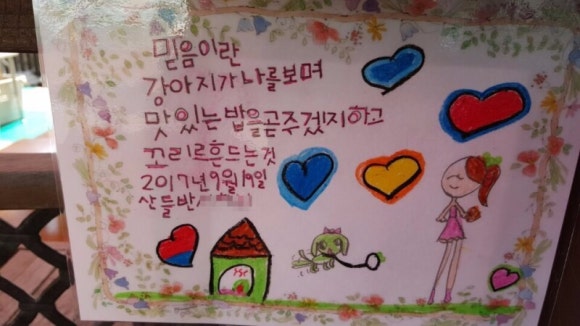 믿음이란
강아지가 나를보며
맛있는 밥을곧주겠지하고
꼬리르흔드는것
2017년9월19일
산들반